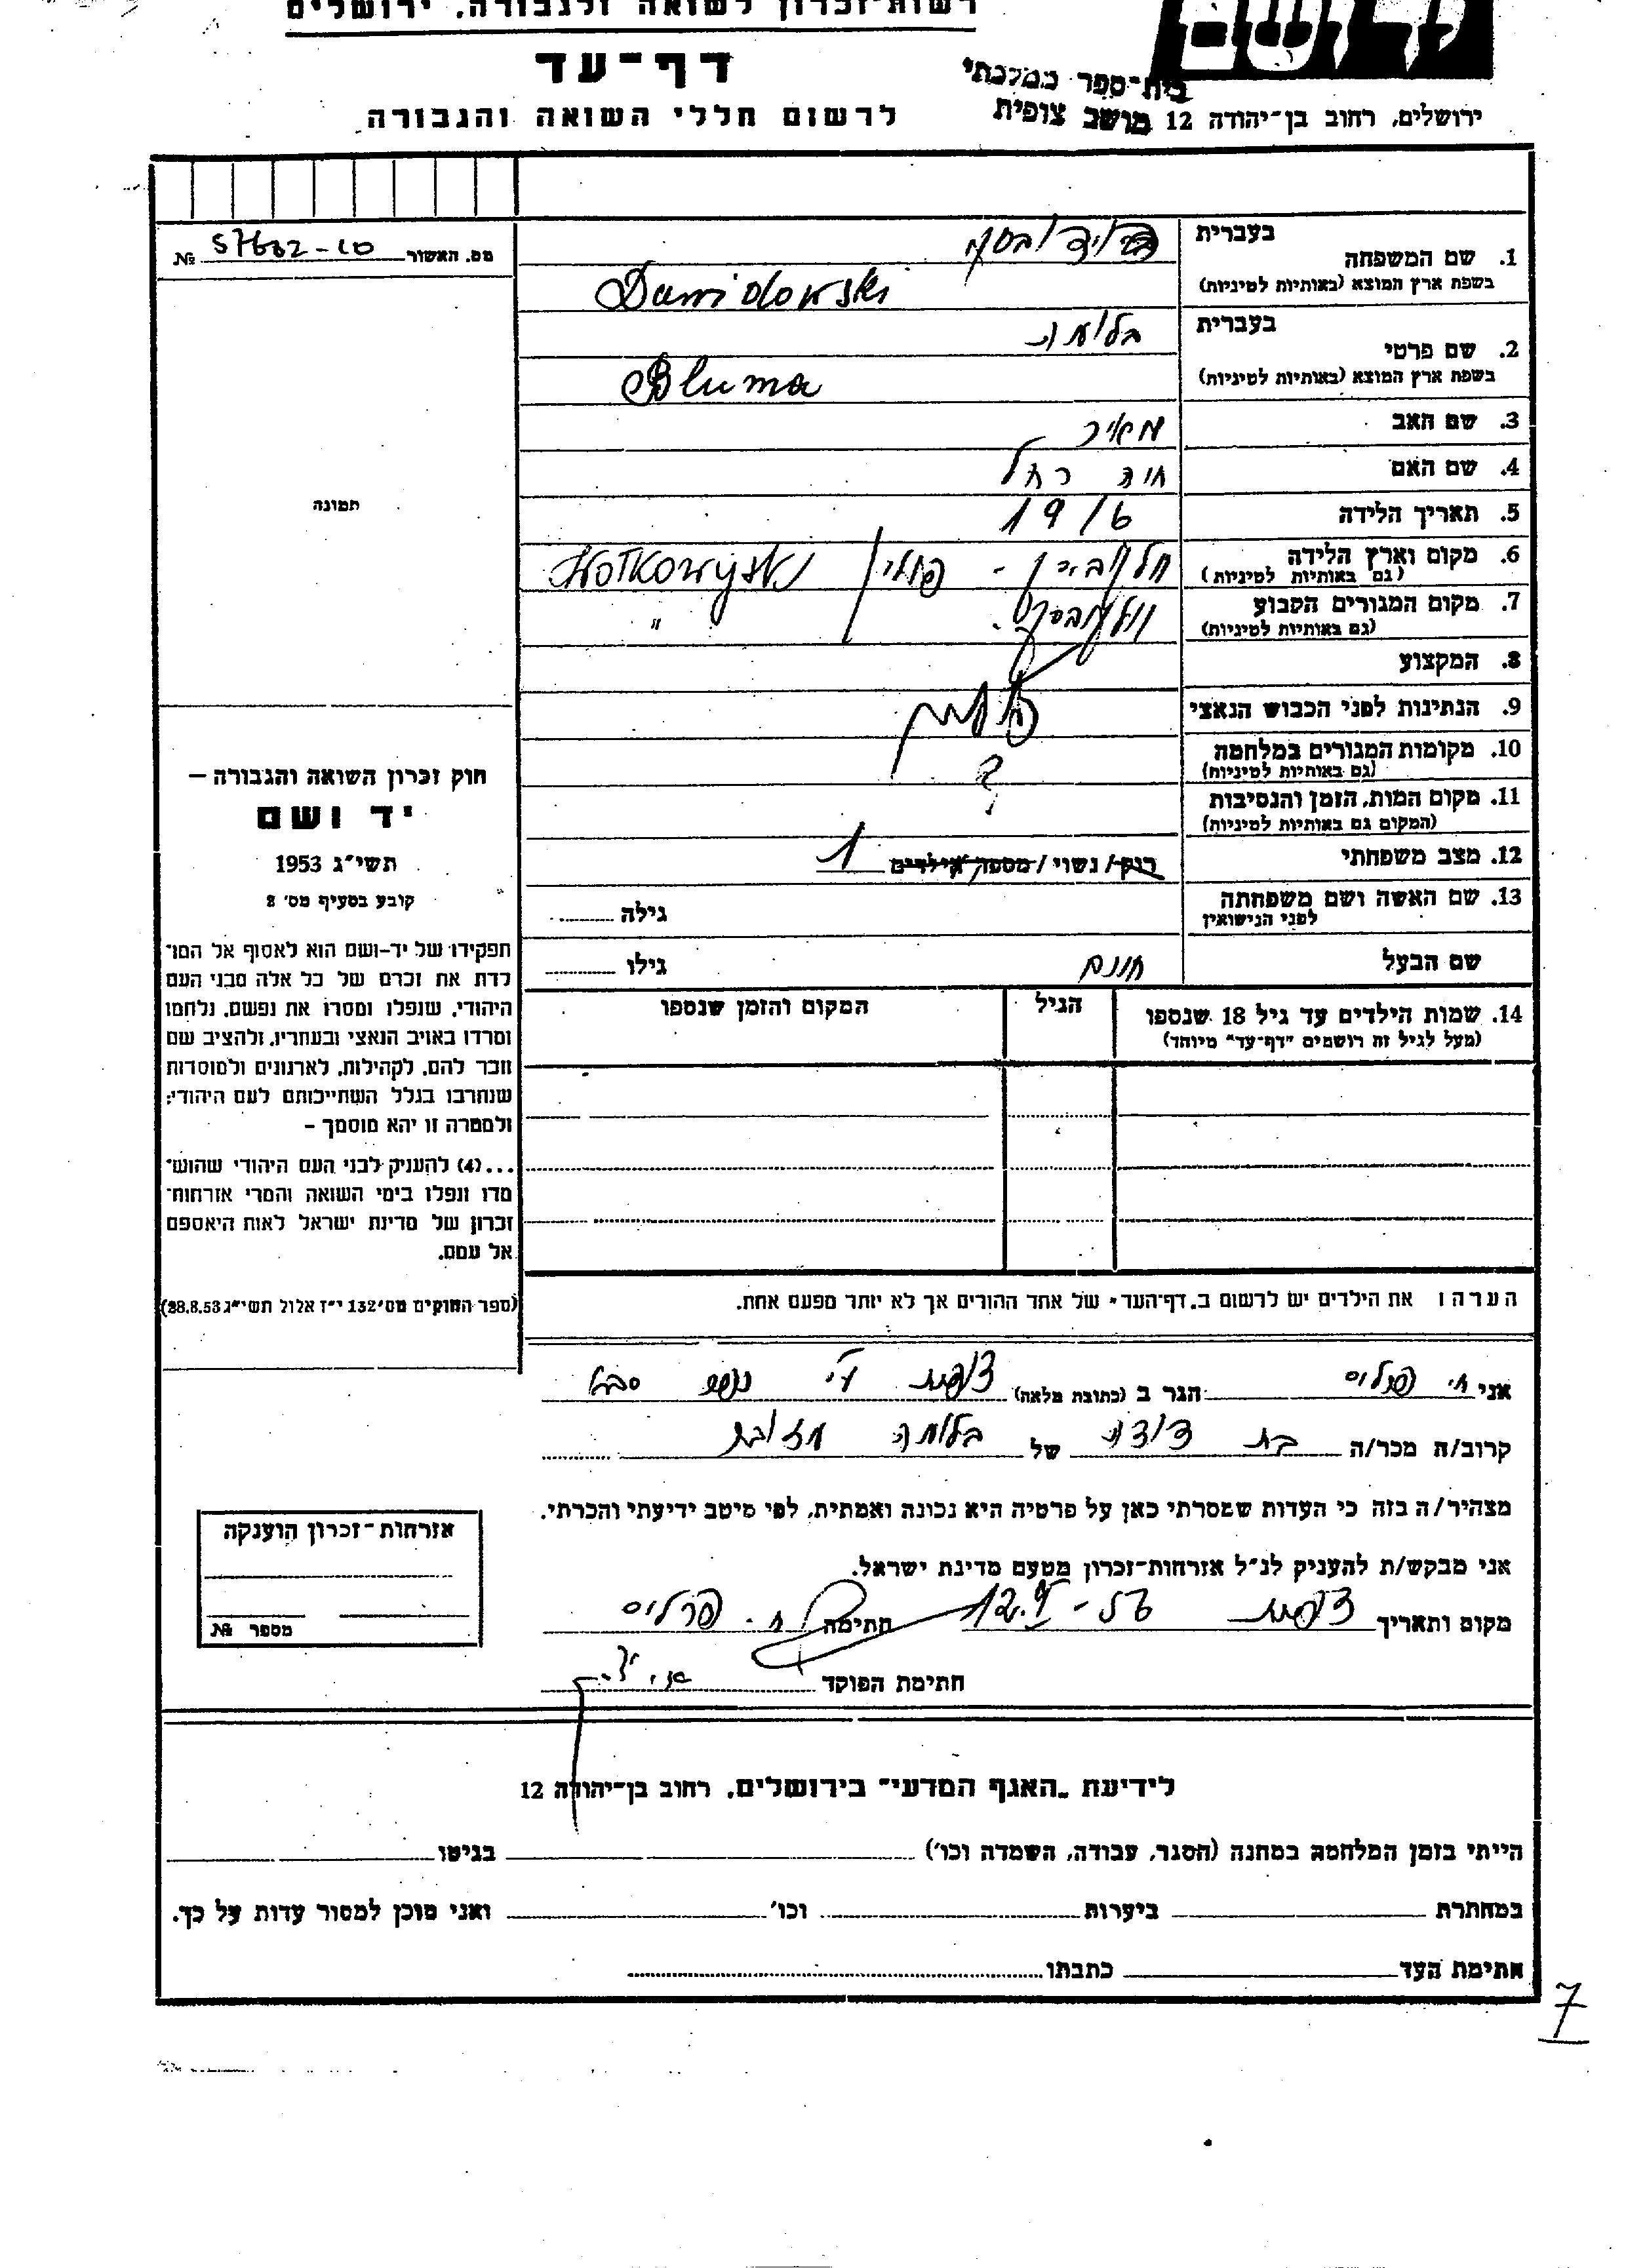 רשות־זכרון לשואה ולגבורה, ירושלים
דף־עד
לרשום חללי השואה והגבורה
בית־ספר ממלכתי
מושב צופית
ירושלים, רחוב בן־יהודה 12
מס. האשור 57682-10 №
1. שם המשפחה
בעברית דוידובסקי
בשפת ארץ המוצא (באותיות לטיניות) Dawidowski
2. שם פרטי
בעברית בלומה
בשפת ארץ המוצא (באותיות לטיניות) Bluma
3. שם האב מאיר
4. שם האם חיה רחל
5. תאריך הלידה 1916
6. מקום וארץ הלידה פולין
(גם באותיות לטיניות)
7. מקום המגורים הקבוע "
(גם באותיות לטיניות)
8. המקצוע
9. הנתינות לפני הכבוש הנאצי
10. מקומות המגורים במלחמה ?
(גם באותיות לטיניות)
11. מקום המות, הזמן והנסיבות
(המקום גם באותיות לטיניות)
12. מצב משפחתי רווק/ נשוי/ מספר ילדים 1
13. שם האשה ושם משפחתה
לפני הנישואין
גילה
שם הבעל
גילו
14. שמות הילדים עד גיל 18 שנספו
(מעל לגיל זה רושמים "דף־עד" מיוחד)
הגיל
המקום והזמן שנספו
תמונה
חוק זכרון השואה והגבורה –
יד ושם
תשי"ג 1953
קובע בסעיף מס' 2
תפקידו של יד-ושם הוא לאסוף אל המו־
לדת את זכרם של כל אלה מבני העם
היהודי, שנפלו ומסרו את נפשם, נלחמו
ומרדו באויב הנאצי ובעוזריו, ולהציב שם
וזכר להם, לקהילות, לארגונים ולמוסדות
שנחרבו בגלל השתייכותם לעם היהודי;
ולמטרה זו יהא מוסמך –
...(4) להעניק לבני העם היהודי שהוש־
מדו ונפלו בימי השואה והמרי אזרחות־
זכרון של מדינת ישראל לאות היאספם
אל עמם.
(ספר החוקים מס' 132 י"ז אלול תשי"ג 28.8.53)
הערה: את הילדים יש לרשום ב"דף־העד" של אחד ההורים אך לא יותר מפעם אחת.
אני ח. פרלוס הגר ב (כתובת מלאה) צופית ע"י כפר סבא
קרוב/ה מכר/ה בת דודה של בלומה
מצהיר/ה בזה כי העדות שמסרתי כאן על פרטיה היא נכונה ואמתית, לפי מיטב ידיעתי והכרתי.
אני מבקש/ת להעניק לנ"ל אזרחות־זכרון מטעם מדינת ישראל.
מקום ותאריך צופית 12.V - 56 חתימה ח. פרלוס
חתימת הפוקד
אזרחות־זכרון הוענקה
מספר №
לידיעת "האגף המדעי" בירושלים, רחוב בן־יהודה 12
הייתי בזמן המלחמה במחנה (הסגר, עבודה, השמדה וכו') בגיטו
במחתרת ביערות וכו' ואני מוכן למסור עדות על כך.
חתימת העד כתבתו
7